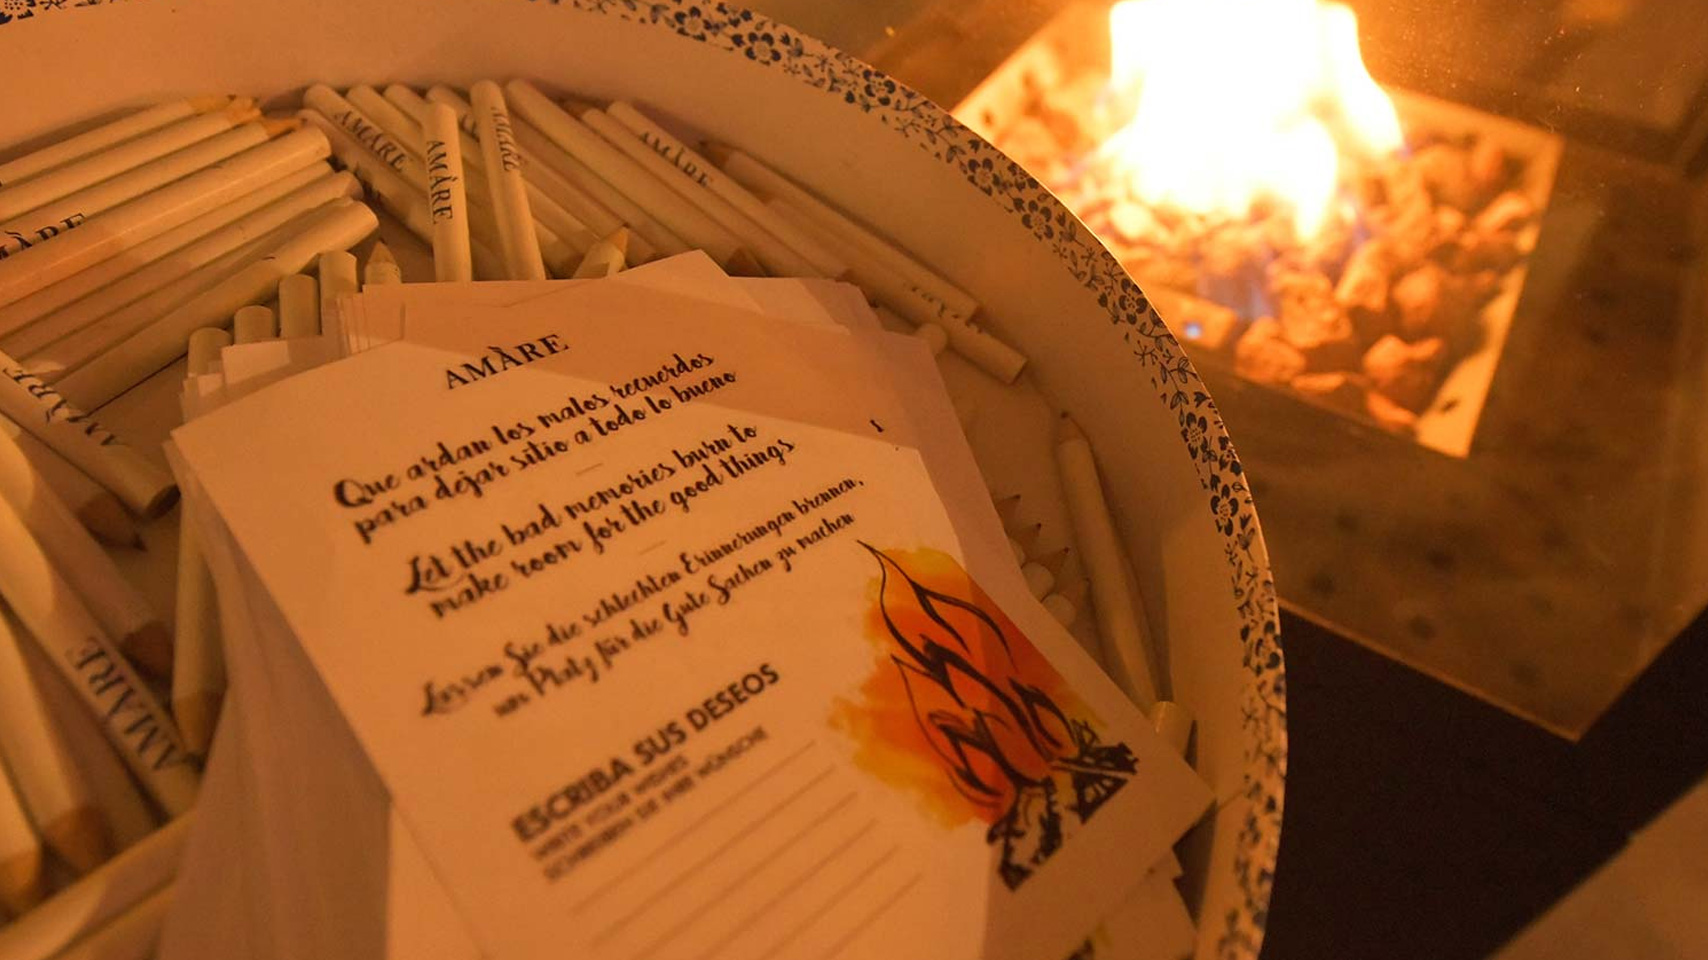 AMÀRE
AMÀRE
AMÀRE
AMÀRE
AMÀRE
AMÀRE
AMÀRE
AMÀRE
Que ardan los malos recuerdos
para dejar sitio a todo lo bueno
Let the bad memories burn to
make room for the good things
Lassen Sie die schlechten Erinnerungen brennen,
um Platz für die Gute Sachen zu machen
ESCRIBA SUS DESEOS
WRITE YOUR WISHES
SCHREIBEN SIE IHRE WÜNSCHE